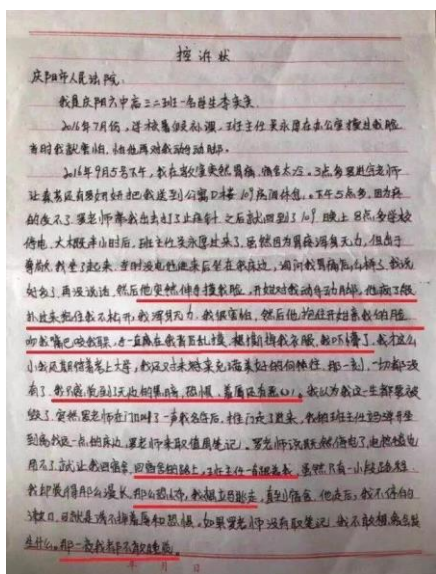 控诉状
庆阳市人民法院:
我是庆阳六中高三二班一名学生李奕奕
2016年7月份,学校暑假补课,班主任吴永厚在办公室摸过我脸
当时我就害怕,怕他再对我动手动脚。
2016年9月5号下午,我在教室突然胃痛,宿舍太冷。3点多罗进宇老师
让
把我送到公寓D楼109房间休息。下午5点多,因为疼
的受不了,罗老师带我出去打了止疼针,之后就回到了109,晚上8点多学校
停电,大概过半小时后,班主任吴永厚过来了,虽然因为胃疼浑身无力,但出于
尊敬,我坐了起来,当时没电他进来后坐在我床边,询问我胃痛怎么样了,我说
好多了,再没说话,然后他突然伸手摸我脸,开始对我动手动脚,他疯了般
扑过来抱住我不松开,我浑身无力,我很害怕,然后他抱住开始亲我的脸
吻我嘴巴咬我耳朵,手一直在我背后乱摸,想撕掉我衣服,我吓懵了,我才这么
小我还期待着考上大学,我还对未来充满美好的向往,那一刻,一切都没
有了,我只感觉到了无边的黑暗,恐惧,羞辱还有恶心,我以为我这一生都要被
毁了,突然罗老师在门口叫了一声我名字后,推门走了进来,我的班主任立马弹开坐
到离我远一点的床边,罗老师来取值周笔记,罗老师说既然停电了,电热毯也
用不了,就让我回宿舍,回宿舍的路上,班主任一直跟着我,虽然只有一小段路程
我却觉得那么漫长,那么恐怖,我想立马跑走,直到宿舍,他走后,我不停的
漱口,可就是洗不掉羞辱和恐惧,如果罗老师没有取笔记,我不敢想象会发
生什么。那一夜我都不敢睡觉。
年 月 日